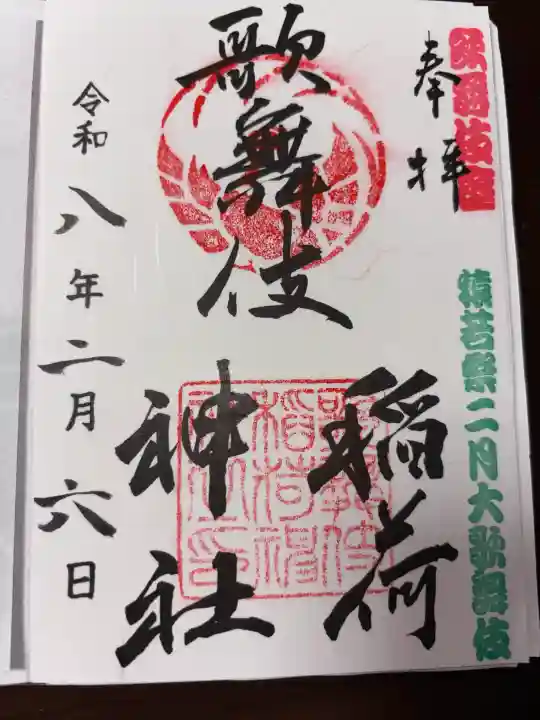 歌舞伎座
奉拝
猿若祭二月大歌舞伎
歌舞伎
稲荷
神社
令和八年二月六日